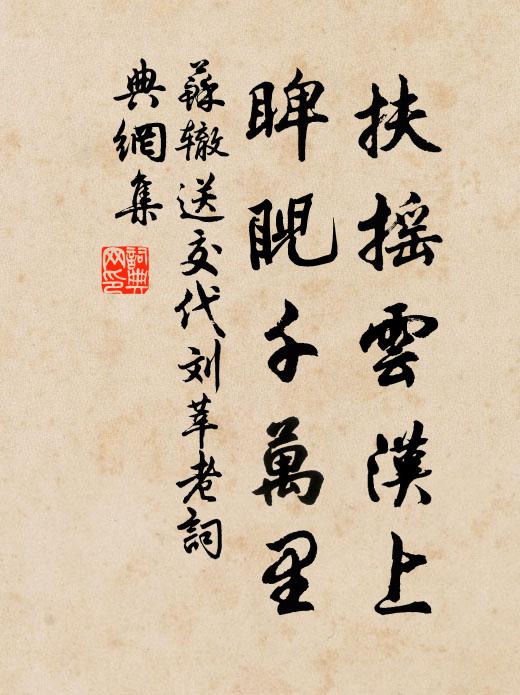 扶摇雲漢上
睥睨千萬里
蘇辙送交代刘莘老詞
典網集
詞典网印